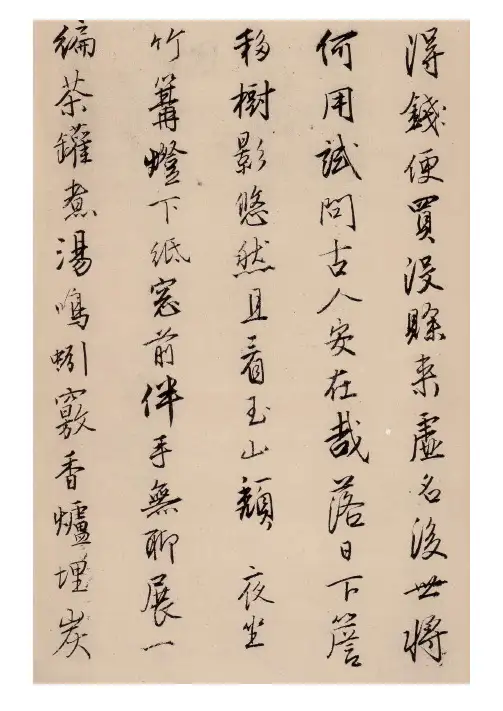 得錢便買沒賒來虛名後世將
何用試問古人安在哉落日下簷
移樹影悠然且看玉山頹 夜坐
竹篝燈下紙窓前伴手無聊展一
編茶罐煮湯鳴蚓竅香爐埋炭